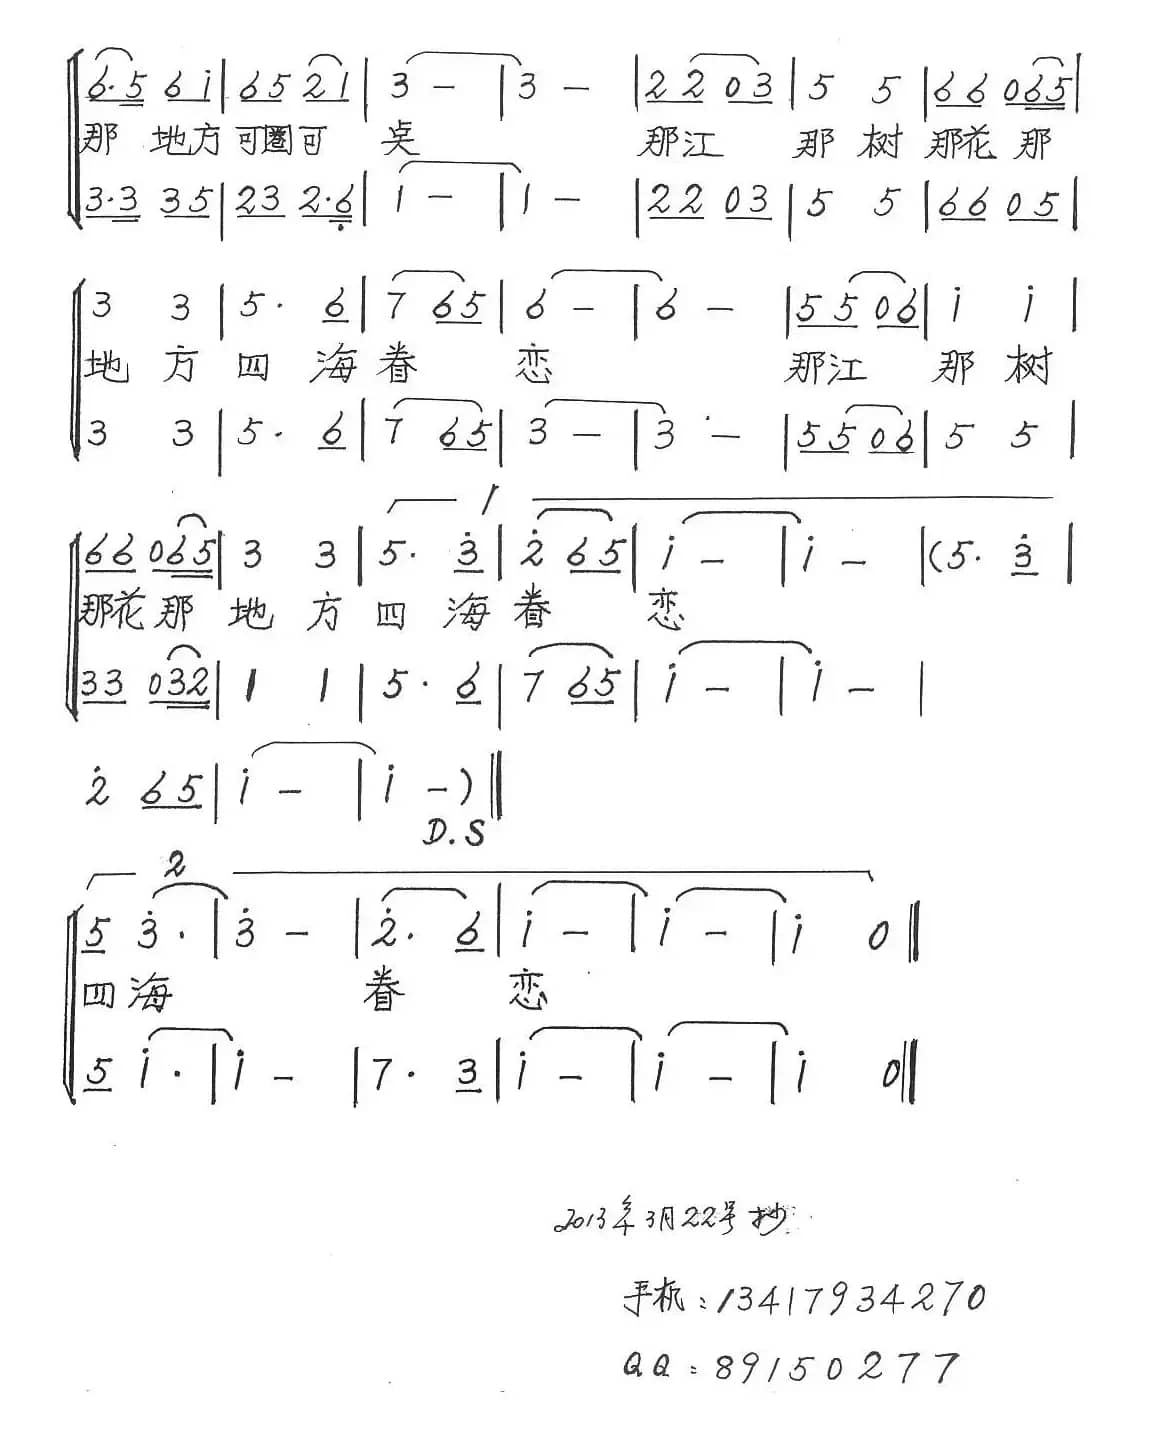 6·5 6i|65 21|3 -|3 -|22 03|5 5|66 065|
那 地方 可圈可 奌 那江 那 树 那花 那
3·3 35|23 2·6̣|1 -|1 -|22 03|5 5|66 05|
3 3|5· 6|7 65|6 -|6 -|55 06|i i|
地 方 四 海 眷 恋 那江 那 树
3 3|5· 6|7 65|3 -|3 -|55 06|5 5|
1
66 065|3 3|5· 3̇|2̇ 65|i -|i -|(5· 3̇|
那花 那 地 方 四 海 眷 恋
33 032|1 1|5· 6|7 65|i -|i -|
2̇ 65|i -|i -)‖
D.S
2
5 3̇·|3̇ -|2̇· 6|i -|i -|i 0‖
四 海 眷 恋
5 i·|i -|7· 3|i -|i -|i 0‖
2013年3月22号抄
手机:13417934270
QQ:89150277